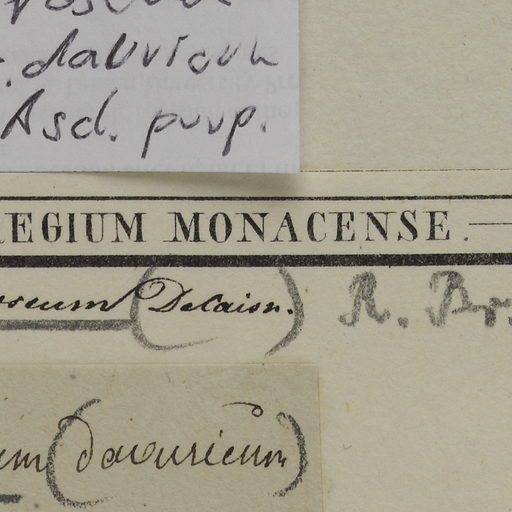 dauricum
Asd. purp.
REGIUM MONACENSE.
roseum (Decaisn.) R. Br.
um (davuricum)